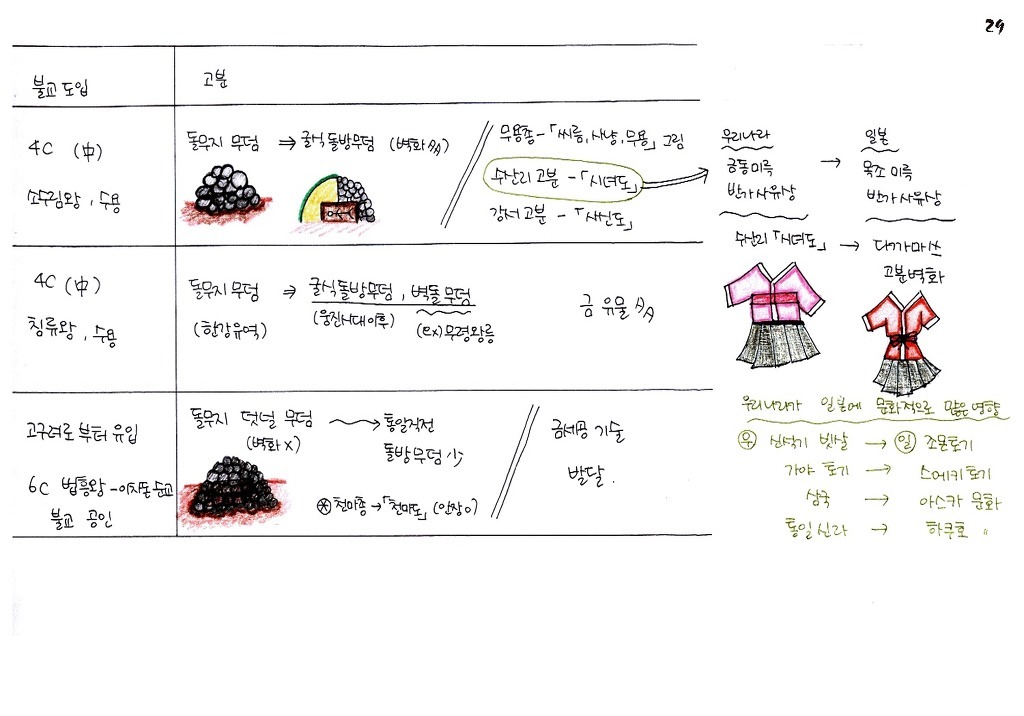 29
불교 도입
고분
4C (中)
소수림왕, 수용
돌무지 무덤 ⇒ 굴식 돌방무덤 (벽화 多)
무용총 - 「씨름, 사냥, 무용」 그림
수산리 고분 - 「시녀도」
강서 고분 - 「사신도」
4C (中)
침류왕, 수용
돌무지 무덤 ⇒ 굴식 돌방무덤, 벽돌 무덤
(한강유역)
(웅진시대 이후)
(ex) 무령왕릉
금 유물 多
고구려로 부터 유입
6C 법흥왕 - 이차돈 순교
불교 공인
돌무지 덧널 무덤
(벽화 X)
통일직전
돌방무덤 少
※ 천마총 → 「천마도」 (안장에)
금세공 기술
발달.
우리나라 → 일본
금동미륵
반가사유상
목조 미륵
반가사유상
수산리 「시녀도」 → 다카마쓰
고분벽화
우리나라가 일본에 문화적으로 많은 영향
우 신석기 빗살 → 일 조몬토기
가야 토기 → 스에키토기
삼국 → 아스카 문화
통일신라 → 하쿠호 〃